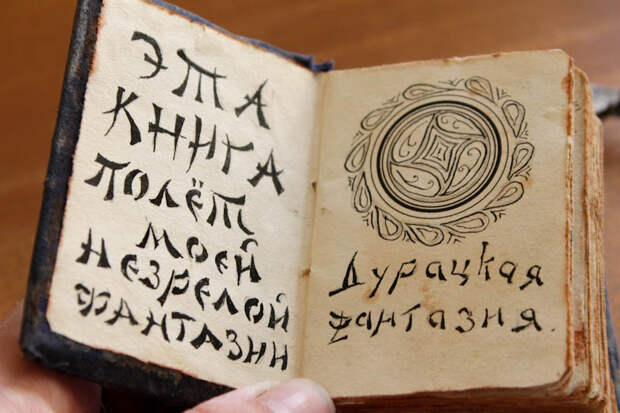 ЭТА
КНИГА
ПОЛЁТ
МОЕЙ
НЕЗРЕЛОЙ
ФАНТАЗИИ
Дурацкая
фантазия.